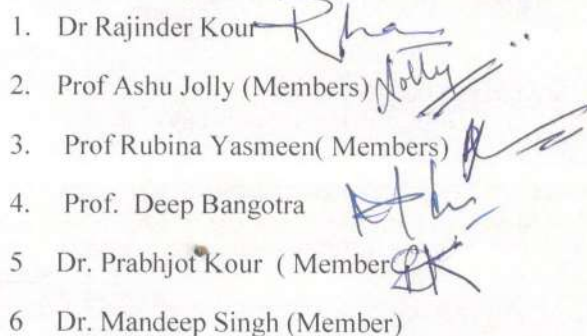 1. Dr Rajinder Kour
2. Prof Ashu Jolly (Members) Jolly
3. Prof Rubina Yasmeen( Members)
4. Prof. Deep Bangotra
5 Dr. Prabhjot Kour ( Member
6 Dr. Mandeep Singh (Member)